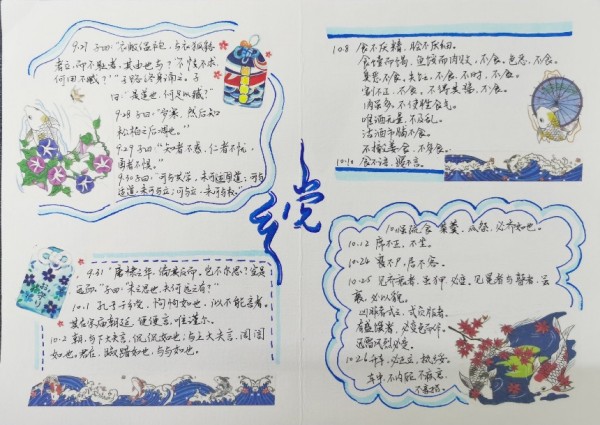 9.27 子曰:“衣敝缊袍,与衣狐貉
者立,而不耻者,其由也与?‘不忮不求,
何用不臧?’”子路终身诵之。子
曰:“是道也,何足以臧?”
9.28 子曰:“岁寒,然后知
松柏之后凋也。”
9.29 子曰:“知者不惑,仁者不忧,
勇者不惧。”
9.30 子曰:“可与共学,未可与适道;可与
适道,未可与立;可与立,未可与权。”
9.31 “唐棣之华,偏其反而。岂不尔思?室是
远而。”子曰:“未之思也,夫何远之有?”
10.1 孔子于乡党,恂恂如也,似不能言者。
其在宗庙朝廷,便便言,唯谨尔。
10.2 朝,与下大夫言,侃侃如也;与上大夫言,訚訚
如也。君在,踧踖如也,与与如也。
乡党
10.8 食不厌精,脍不厌细。
食饐而餲,鱼馁而肉败,不食。色恶,不食。
臭恶,不食。失饪,不食。不时,不食。
割不正,不食。不得其酱,不食。
肉虽多,不使胜食气。
唯酒无量,不及乱。
沽酒市脯不食。
不撤姜食,不多食。
10.10 食不语,寝不言。
疏食菜羹,瓜祭,必齐如也。
10.12 席不正,不坐。
10.24 寝不尸,居不客。
10.25 见齐衰者,虽狎,必变。见冕者与瞽者,虽
亵,必以貌。
凶服者式之,式负版者。
有盛馔者,必变色而作。
迅雷风烈必变。
10.26 升车,必正立,执绥。
车中,不内顾,不疾言,
不亲指。